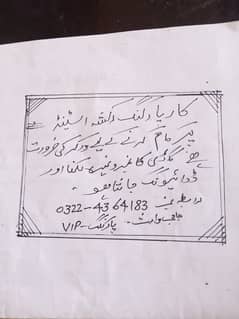 کار پارکنگ رکشہ اسٹینڈ
پر کام کرنے کے لیے ورکر کی ضرورت
ہے گاڑی کا نمبر وغیرہ لکھنا اور
ڈرائیونگ جانتا ہو۔
رابطہ نمبر 0322-4364183
پارکنگ - VIP